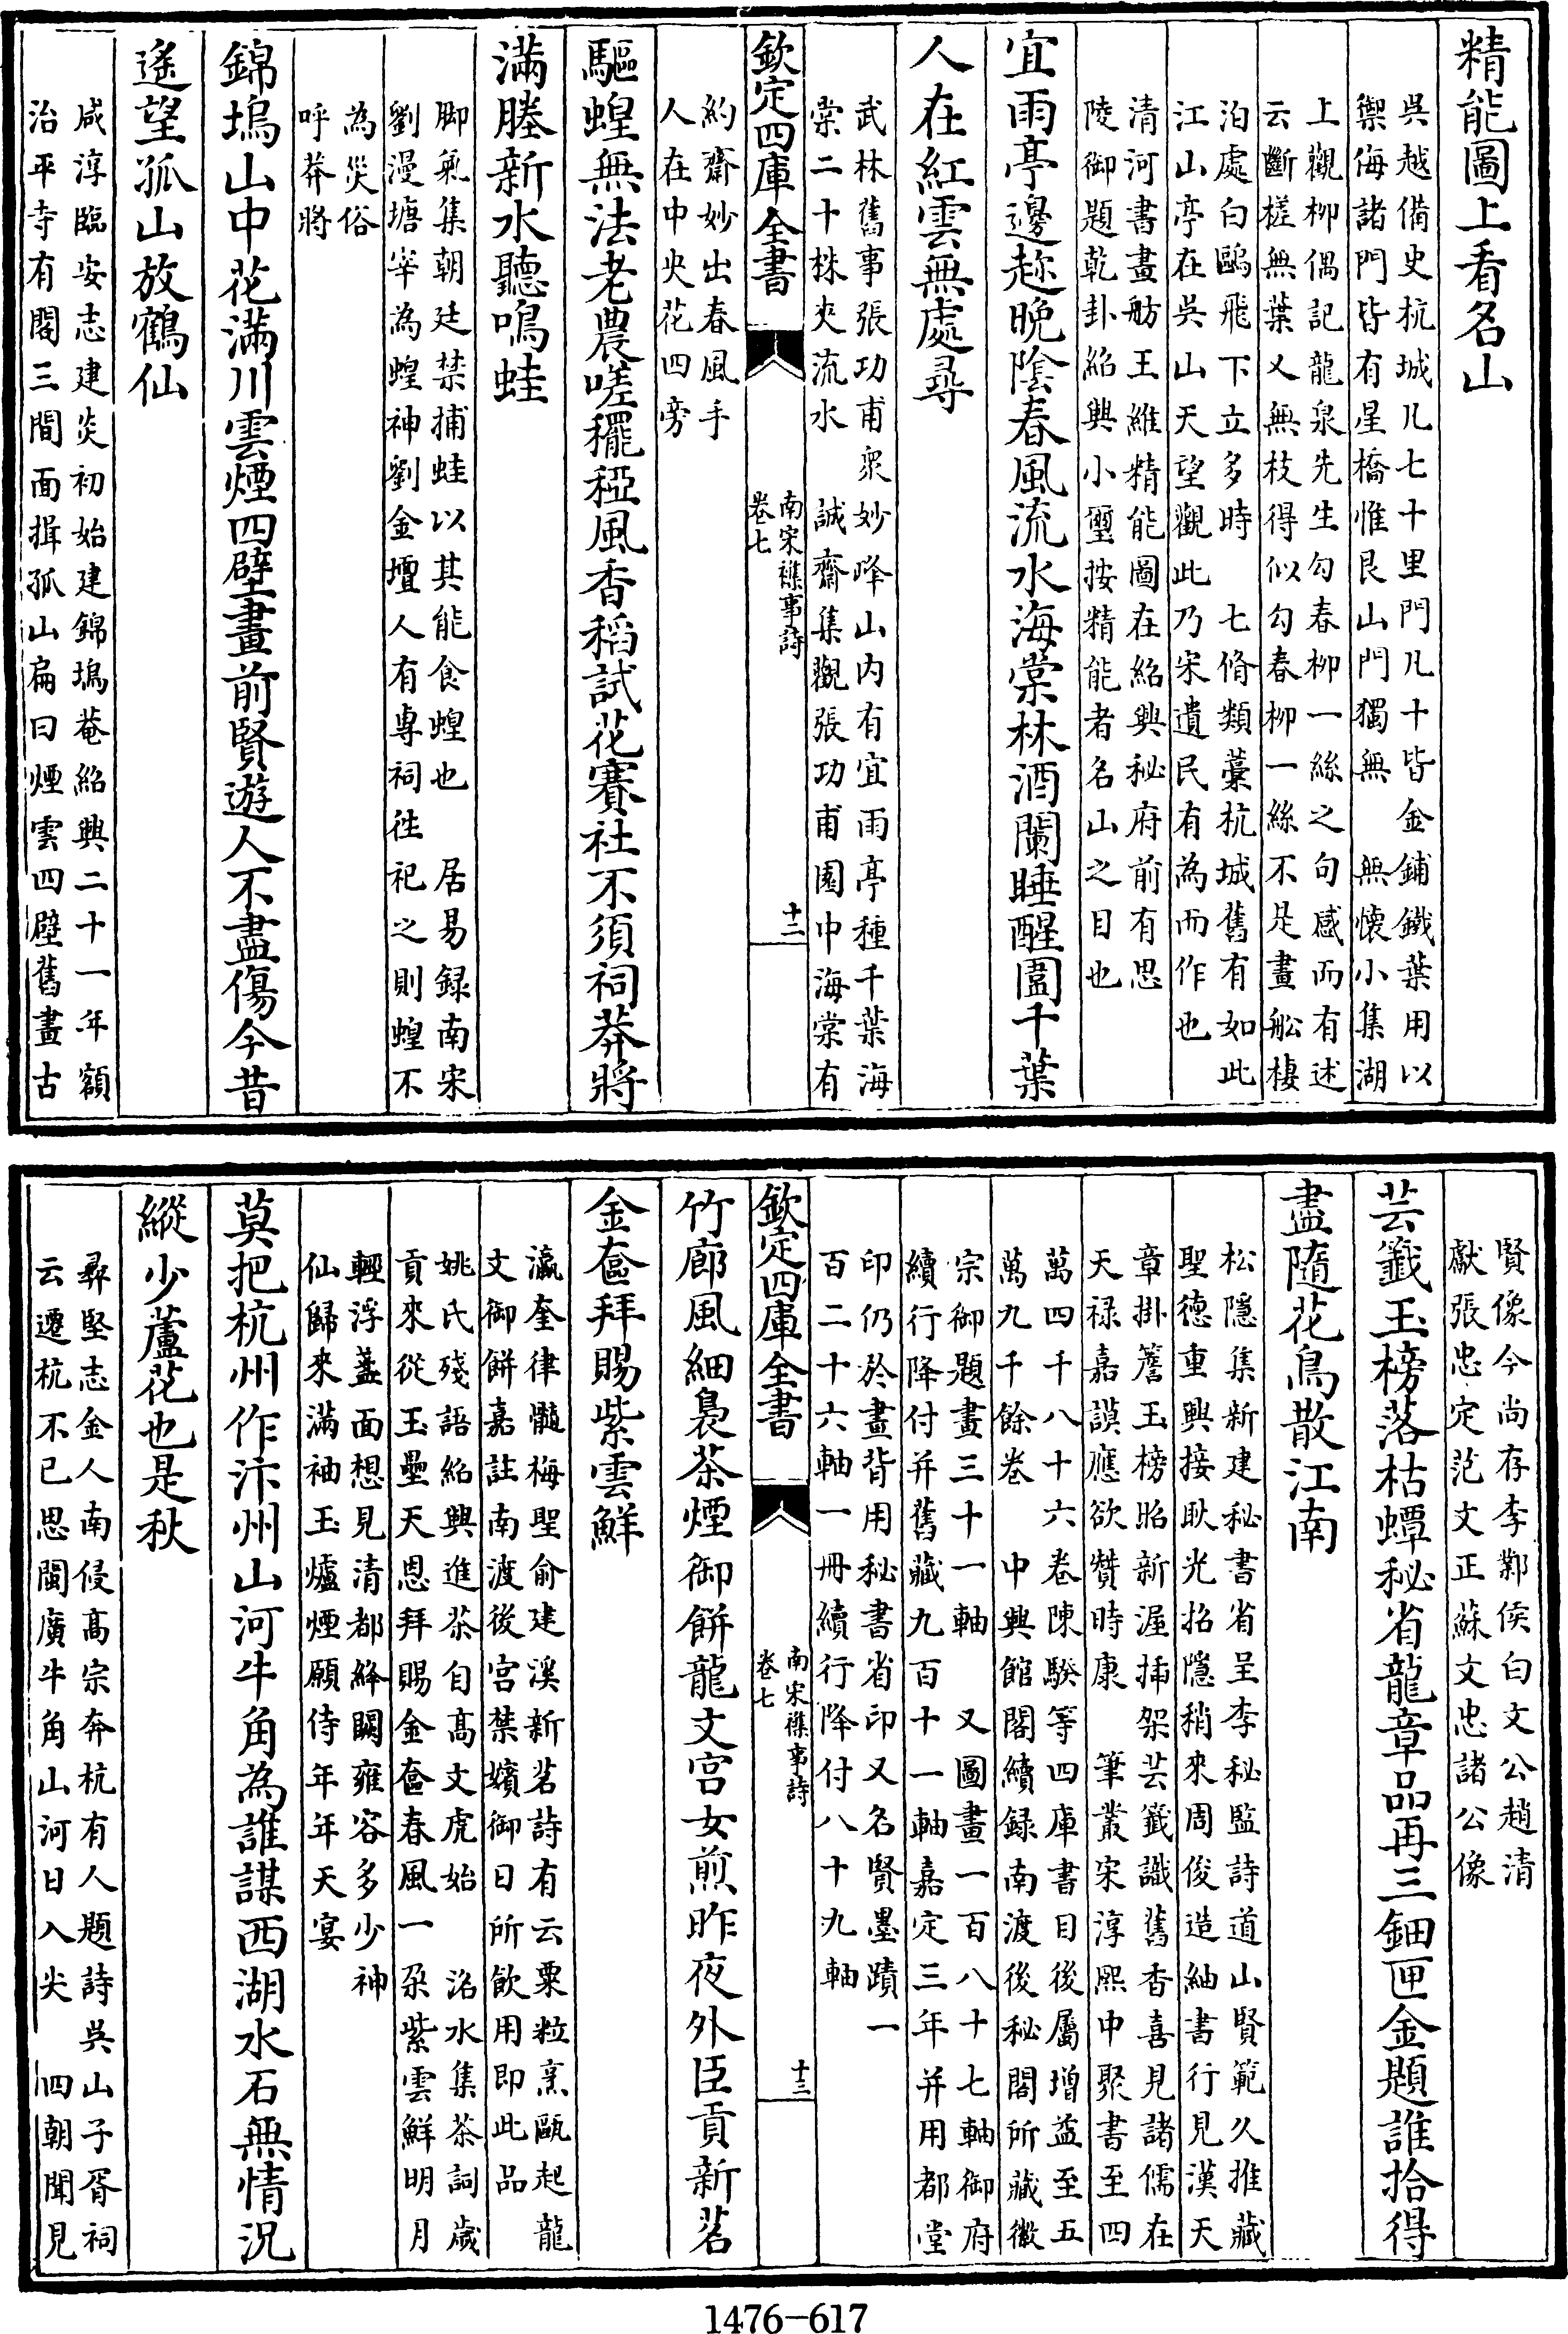 精能圖上看名山
吳越備史杭城凡七十里門凡十皆金鋪鐵葉用以
禦侮諸門皆有星橋惟艮山門獨無　無懷小集湖
上觀柳偶記龍泉先生勾春柳一絲之句感而有述
云斷槎無葉又無枝得似勾春柳一絲不是畫船棲
泊處白鷗飛下立多時　七脩類藁杭城舊有如此
江山亭在吳山天望觀此乃宋遺民有為而作也
清河書畫舫王維精能圖在紹興秘府前有思
陵御題乾卦紹興小璽按精能者名山之目也
宜雨亭邊趂晚陰春風流水海棠林酒闌睡醒園千葉
人在紅雲無處尋
武林舊事張功甫衆妙峰山内有宜雨亭種千葉海
棠二十株夾流水　誠齋集觀張功甫園中海棠有
欽定四庫全書
南宋襍事詩
卷七
十二
約齋妙出春風手
人在中央花四旁
驅蝗無法老農嗟䆉稏風香稻試花賽社不須祠莽將
滿塍新水聽鳴蛙
脚氣集朝廷禁捕蛙以其能食蝗也　居易録南宋
劉漫塘宰為蝗神劉金壇人有專祠徃祀之則蝗不
為災俗
呼莽將
錦塢山中花滿川雲煙四壁畫前賢遊人不盡傷今昔
遙望孤山放鶴仙
咸淳臨安志建炎初始建錦塢菴紹興二十一年額
治平寺有閣三間面揖孤山扁曰煙雲四壁舊畫古
賢像今尚存李鄴侯白文公趙清
獻張忠定范文正蘇文忠諸公像
芸籤玉榜落枯蟫秘省龍章品再三鈿匣金題誰拾得
盡隨花鳥散江南
松隱集新建秘書省呈李秘監詩道山賢範久推藏
聖德重興接耿光招隱稍來周俊造紬書行見漢天
章掛簷玉榜昭新渥揷架芸籤識舊香喜見諸儒在
天禄嘉謨應欲贊時康　筆叢宋淳熙中聚書至四
萬四千八十六卷陳騤等四庫書目後屬增益至五
萬九千餘卷　中興館閣續録南渡後秘閣所藏徽
宗御題畫三十一軸　又圖畫一百八十七軸御府
續行降付并舊藏九百十一軸嘉定三年并用都堂
印仍於畫背用秘書省印又名賢墨蹟一
百二十六軸一冊續行降付八十九軸
欽定四庫全書
南宋襍事詩
卷七
十三
竹廊風細裊茶煙御餅龍文宫女煎昨夜外臣貢新茗
金奩拜賜紫雲鮮
瀛奎律髓梅聖俞建溪新茗詩有云粟粒烹甌起龍
文御餅嘉註南渡後宫禁嬪御日所飲用即此品
姚氏殘語紹興進茶自高文虎始　洺水集茶詞歲
貢來從玉壘天恩拜賜金奩春風一朶紫雲鮮明月
輕浮盞面想見清都絳闕雍容多少神
仙歸來滿袖玉爐煙願侍年年天宴
莫把杭州作汴州山河牛角為誰謀西湖水石無情況
縱少蘆花也是秋
夷堅志金人南侵高宗奔杭有人題詩吳山子胥祠
云遷杭不已思閩廣牛角山河日入尖　四朝聞見
1476-617